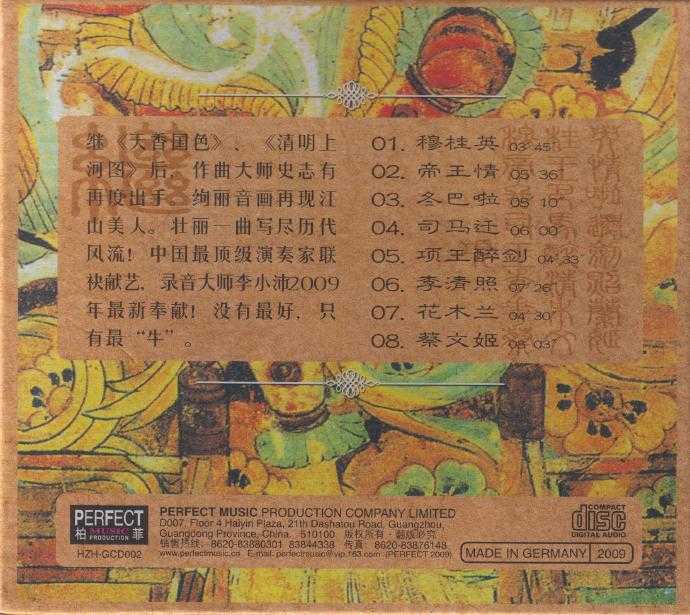 继《天香国色》、《清明上
河图》后，作曲大师史志有
再度出手，绚丽音画再现江
山美人。壮丽一曲写尽历代
风流！中国最顶级演奏家联
袂献艺，录音大师李小沛2009
年最新奉献！没有最好，只
有最“牛”。
01. 穆桂英 03'45"
02. 帝王情 05'36"
03. 冬巴啦 08'10"
04. 司马迁 06'00"
05. 项王醉剑 04'33
06. 李清照 07'26"
07. 花木兰 04'30"
08. 蔡文姬 08'03"
PERFECT
柏 MUSIC 菲
PRODUCTION
HZH-GCD002
PERFECT MUSIC PRODUCTION COMPANY LIMITED
D007, Floor 4 Haiyin Plaza, 21th Dashatou Road, Guangzhou,
Guangdong Province, China. 510100 版权所有·翻版必究
销售热线: 8620-83880301 83844338 传真: 8620-83876148
www.perfectmusic.cn E-mail: perfectmusic@vip.163.com (PERFECT 2009)
COMPACT
disc
DIGITAL AUDIO
MADE IN GERMANY 2009